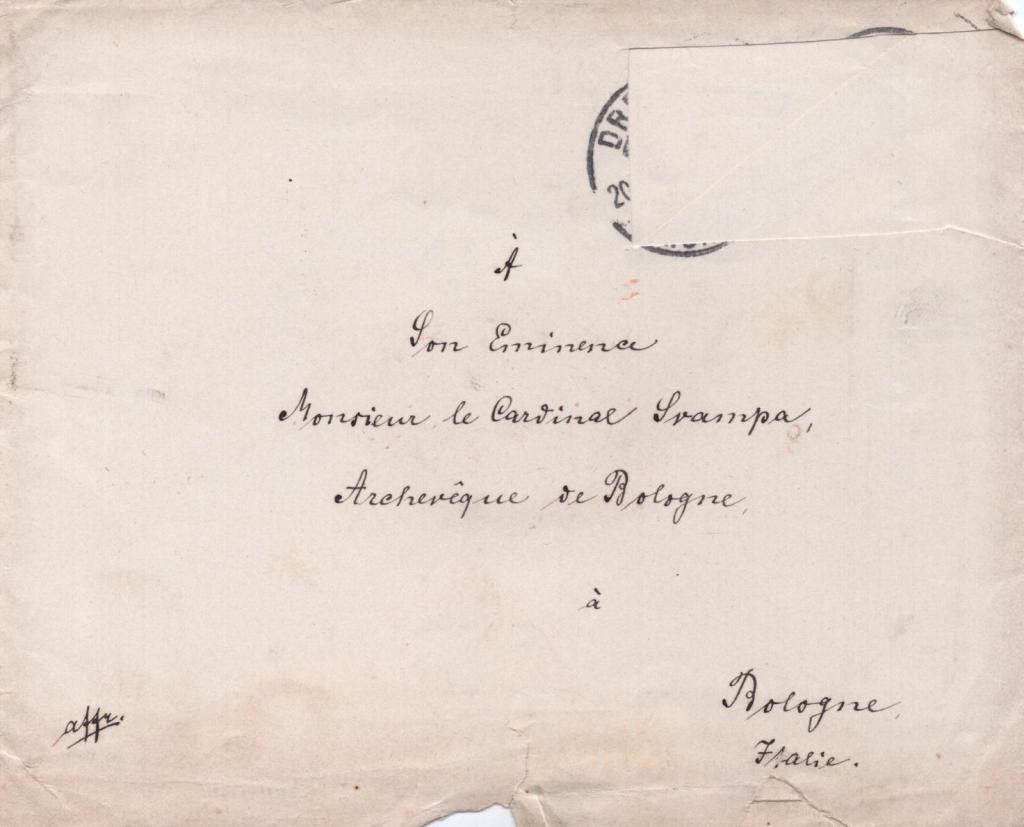 DR
2
À
Son Eminence
Monsieur le Cardinal Svampa,
Archevêque de Bologne,
à
Bologne,
Italie.
affr.